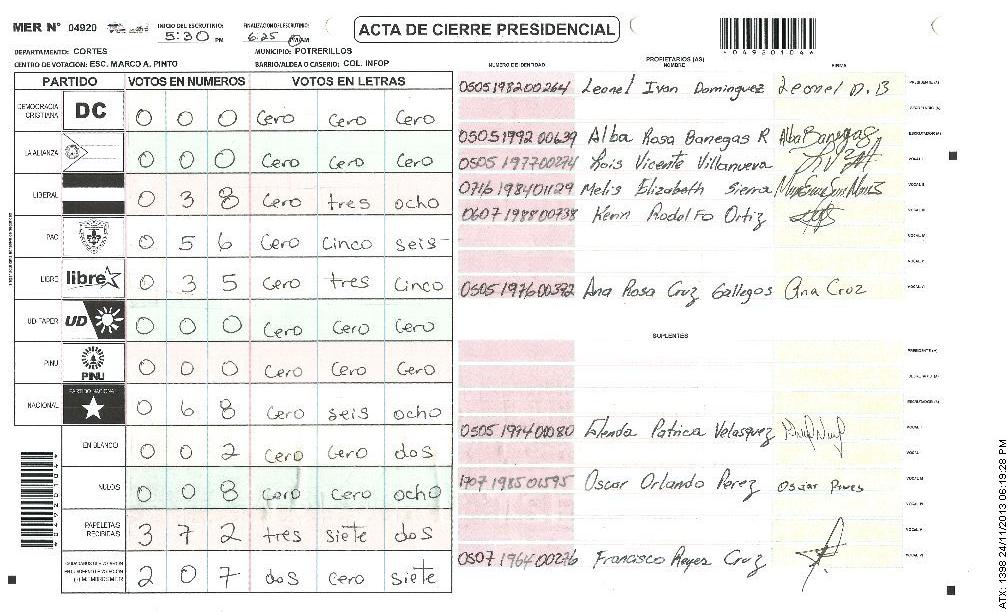 MER N° 04920
INICIO DEL ESCRUTINIO:
5:30 PM
FINALIZACION ESCRUTINIO:
6:25
ACTA DE CIERRE PRESIDENCIAL
DEPARTAMENTO: CORTES
MUNICIPIO: POTRERILLOS
CENTRO DE VOTACION: ESC. MARCO A. PINTO
BARRIO/ALDEA O CASERIO: COL. INFOP
PARTIDO VOTOS EN NUMEROS VOTOS EN LETRAS
DEMOCRACIA CRISTIANA DC 0 0 0 Cero Cero Cero
LA ALIANZA 0 0 0 Cero Cero Cero
LIBERAL 0 3 8 Cero tres ocho
PAC 0 5 6 Cero Cinco seis
LIBRE libre 0 3 5 Cero tres Cinco
UD-FAPER UD 0 0 0 Cero Cero Cero
PINU PINU 0 0 0 Cero Cero Cero
NACIONAL PARTIDO NACIONAL 0 6 8 Cero seis ocho
EN BLANCO 0 0 2 Cero Cero dos
NULOS 0 0 8 Cero Cero ocho
PAPELETAS RECIBIDAS 3 7 2 tres siete dos
2 0 7 dos cero siete
NUMERO DE IDENTIDAD
PROPIETARIOS (AS)
NOMBRE
FIRMA
0505198200264 Leonel Ivan Dominguez Leonel D. B
PRESIDENTE (A)
SECRETARIO (A)
0505199200639 Alba Rosa Banegas R Alba Banegas
ESCRUTADOR (A)
0505197700274 Vicente Villanueva
VOCAL I
0716198401129 Melis Elizabeth Sierra
VOCAL II
0607198800738 Rodolfo Ortiz
VOCAL III
VOCAL IV
VOCAL V
0505197600392 Ana Rosa Cruz Gallegos Ana Cruz
VOCAL VI
SUPLENTES
PRESIDENTE (A)
SECRETARIO (A)
ESCRUTADOR (A)
Patricia Velasquez
VOCAL I
VOCAL II
1707198501595 Oscar Orlando Perez Oscar
VOCAL III
VOCAL IV
VOCAL V
0507196400276 Francisco Reyes Cruz
VOCAL VI
ATX: 1398 24/11/2013 06:19:28 PM